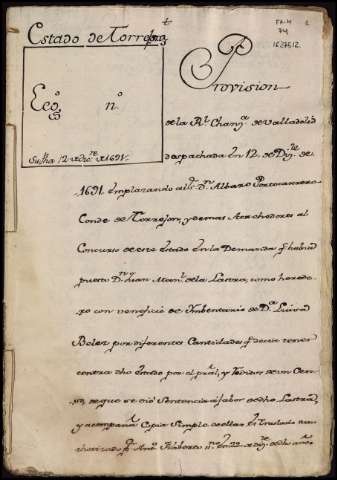 Estado de Torrejon
Leg.º n.º
Su fha 12 de Dic.re de 1691.
Provision
de la R.l Chan.a de Valladolid
despachada en 12. de Dij.re de
1691 emplazando al S.r D.n Albaro Portocarrero
Conde de Torrejon, y demas Acrehedores al
Concurso de este estado en la Demanda q.e havia
puesto D.n Juan Man.l de la Lastra, como herede-
ro con veneficio de Ymbentario de D.a Luisa
Belez por diferentes Cantidades q.e decia tener
contra dho estado por el pral, y reditos de un Cen-
so, de que se dió Sentencia a fabor de dho Lastra,
y acompaña Copia Simple de ellas en Traslado au-
thorizado